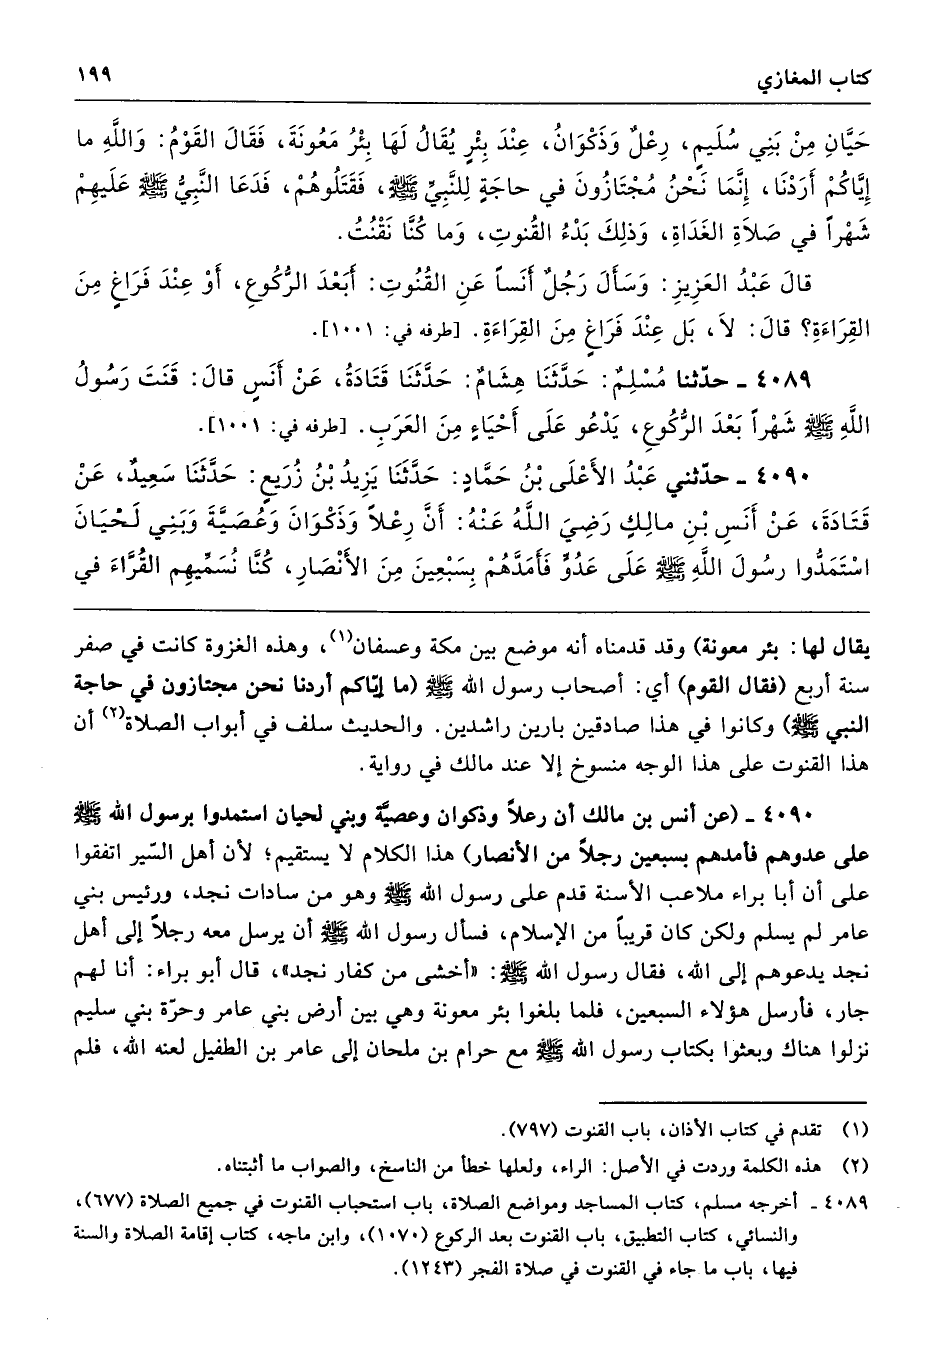 كتاب المغازي ١٩٩
حَيَّانِ مِنْ بَنِي سُلَيمٍ، رِعْلٌ وَذَكْوَانُ، عِنْدَ بِئْرٍ يُقَالُ لَهَا بِئْرُ مَعُونَةَ، فَقَالَ القَوْمُ: وَاللَّهِ ما
إِيَّاكُمْ أَرَدْنَا، إِنَّمَا نَحْنُ مُجْتَازُونَ في حاجَةٍ لِلنَّبِيِّ ﷺ، فَقَتَلُوهُمْ، فَدَعَا النَّبِيُّ ﷺ عَلَيهِمْ
شَهْراً في صَلاَةِ الغَدَاةِ، وَذلِكَ بَدْءُ القُنوتِ، وَما كُنَّا نَقْنُتُ.
قالَ عَبْدُ العَزِيزِ: وَسَأَلَ رَجُلٌ أَنَساً عَنِ القُنُوتِ: أَبَعْدَ الرُّكُوعِ، أَوْ عِنْدَ فَرَاغٍ مِنَ
القِرَاءَةِ؟ قالَ: لاَ، بَل عِنْدَ فَرَاغٍ مِنَ القِرَاءَةِ. [طرفه في: ١٠٠١].
٤٠٨٩ ـ حدّثنا مُسْلِمٌ: حَدَّثَنَا هِشَامٌ: حَدَّثَنَا قَتَادَةُ، عَنْ أَنَسٍ قالَ: قَنَتَ رَسُولُ
اللَّهِ ﷺ شَهْراً بَعْدَ الرُّكُوعِ، يَدْعُو عَلَى أَحْيَاءٍ مِنَ العَرَبِ. [طرفه في: ١٠٠١].
٤٠٩٠ ـ حدّثني عَبْدُ الأَعْلَى بْنُ حَمَّادٍ: حَدَّثَنَا يَزِيدُ بْنُ زُرَيعٍ: حَدَّثَنَا سَعِيدٌ، عَنْ
قَتَادَةَ، عَنْ أَنَسِ بْنِ مالِكٍ رَضِيَ اللَّهُ عَنْهُ: أَنَّ رِعْلاً وَذَكْوَانَ وَعُصَيَّةَ وَبَنِي لَحْيَانَ
اسْتَمَدُّوا رسُولَ اللَّهِ ﷺ عَلَى عَدُوٍّ فَأَمَدَّهُمْ بِسَبْعِينَ مِنَ الأَنْصَارِ، كُنَّا نُسَمِّيهِم القُرَّاءَ في
يقال لها: بئر معونة) وقد قدمناه أنه موضع بين مكة وعسفان(١)، وهذه الغزوة كانت في صفر
سنة أربع (فقال القوم) أي: أصحاب رسول الله ﷺ (ما إيّاكم أردنا نحن مجتازون في حاجة
النبي ﷺ) وكانوا في هذا صادقين بارين راشدين. والحديث سلف في أبواب الصلاة(٢) أن
هذا القنوت على هذا الوجه منسوخ إلا عند مالك في رواية.
٤٠٩٠ ـ (عن أنس بن مالك أن رعلاً وذكوان وعصيَّة وبني لحيان استمدوا برسول الله ﷺ
على عدوهم فأمدهم بسبعين رجلاً من الأنصار) هذا الكلام لا يستقيم؛ لأن أهل السّير اتفقوا
على أن أبا براء ملاعب الأسنة قدم على رسول الله ﷺ وهو من سادات نجد، ورئيس بني
عامر لم يسلم ولكن كان قريباً من الإسلام، فسأل رسول الله ﷺ أن يرسل معه رجلاً إلى أهل
نجد يدعوهم إلى الله، فقال رسول الله ﷺ: «أخشى من كفار نجد»، قال أبو براء: أنا لهم
جار، فأرسل هؤلاء السبعين، فلما بلغوا بئر معونة وهي بين أرض بني عامر وحرّة بني سليم
نزلوا هناك وبعثوا بكتاب رسول الله ﷺ مع حرام بن ملحان إلى عامر بن الطفيل لعنه الله، فلم
(١) تقدم في كتاب الأذان، باب القنوت (٧٩٧).
(٢) هذه الكلمة وردت في الأصل: الراء، ولعلها خطأ من الناسخ، والصواب ما أثبتناه.
٤٠٨٩ ـ أخرجه مسلم، كتاب المساجد ومواضع الصلاة، باب استحباب القنوت في جميع الصلاة (٦٧٧)،
والنسائي، كتاب التطبيق، باب القنوت بعد الركوع (١٠٧٠)، وابن ماجه، كتاب إقامة الصلاة والسنة
فيها، باب ما جاء في القنوت في صلاة الفجر (١٢٤٣).